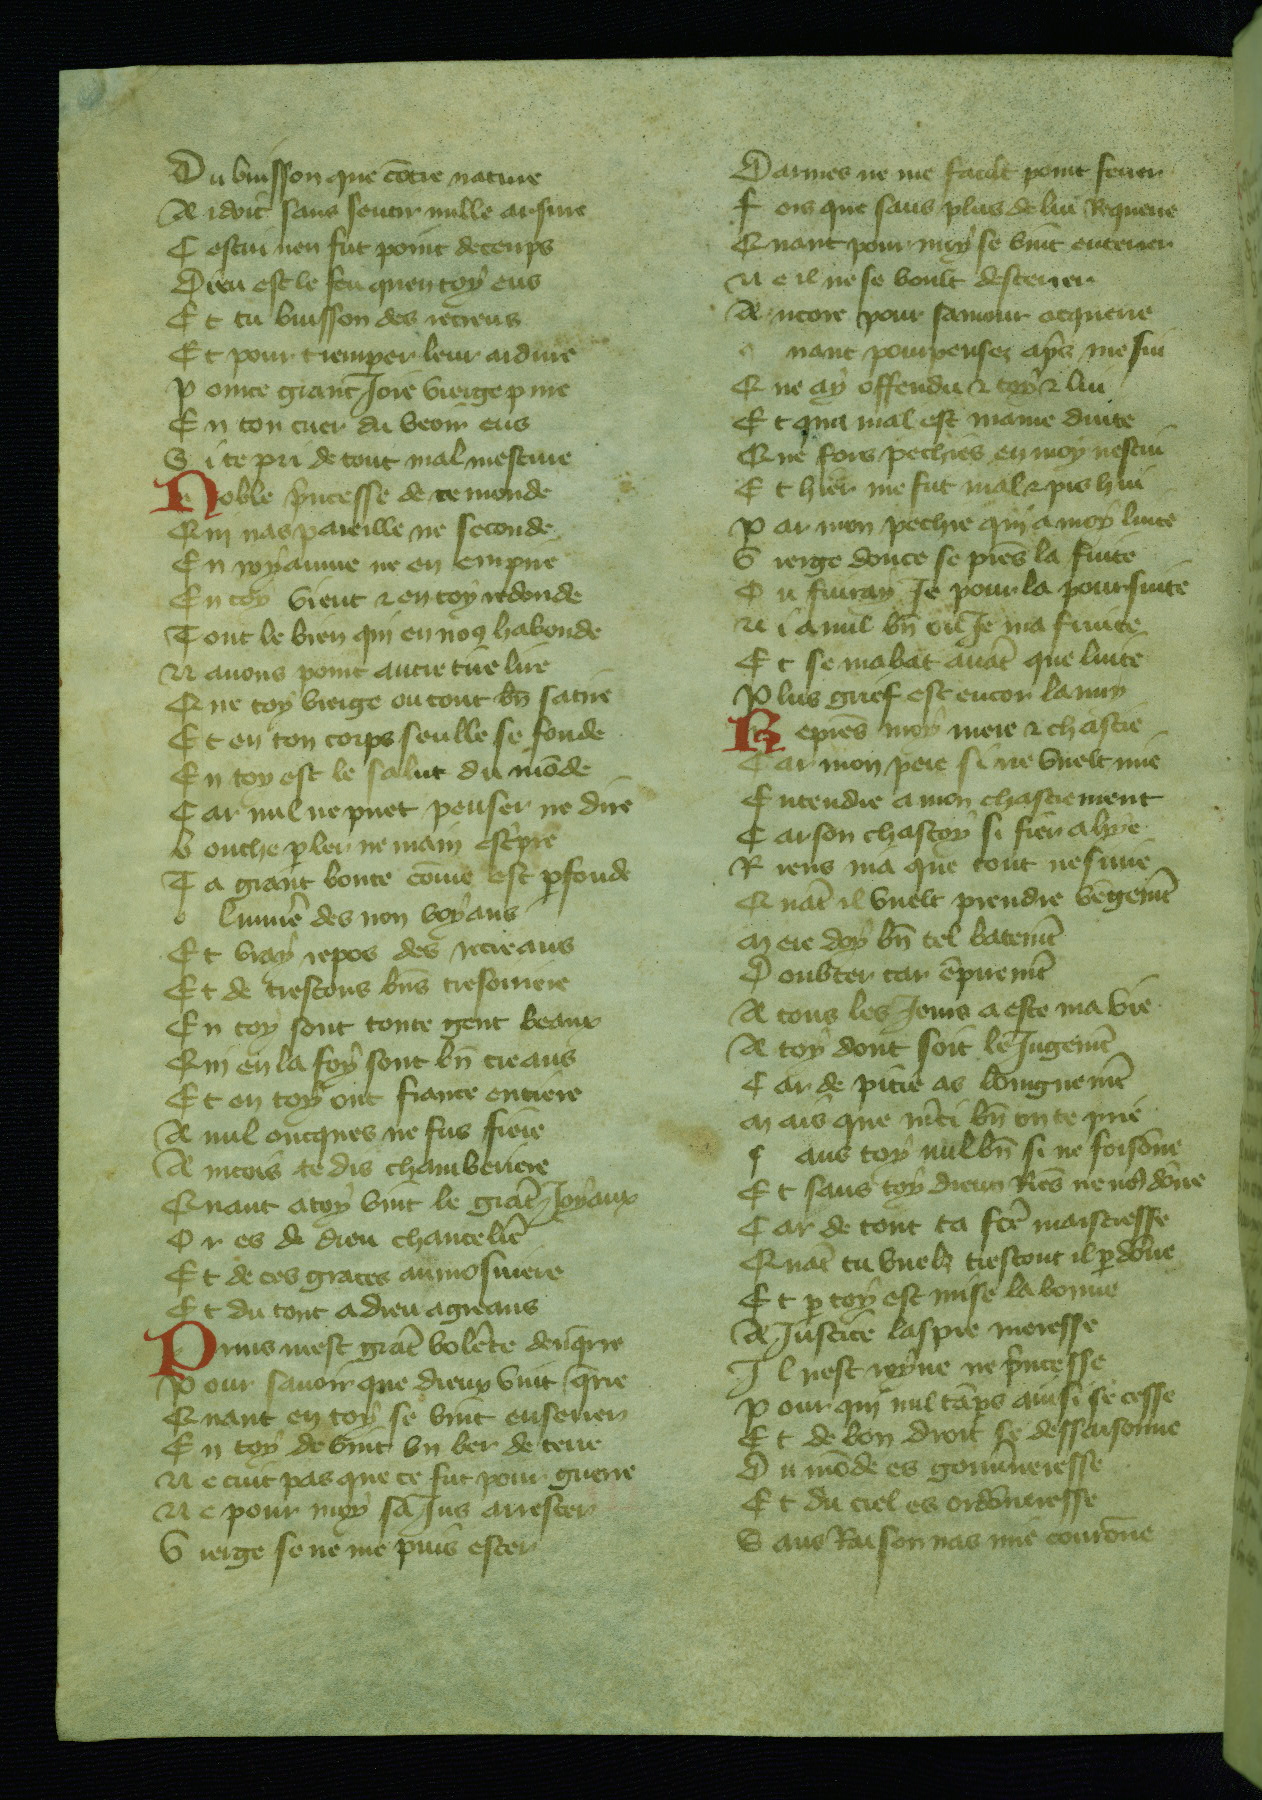 Du buisson que cōtre nature
Ardoit sans sentir nulle arsure
Cestui nen fut point deceups
Dieu est le feu quen toy eus
Et tu buisson des recreus
Et pour tremper leur ardure
Pource grant Joie vierge pure
En ton cuer du veoir eus
Si te pri de tout mal mescure
Noble p̄ncesse de ce monde
Qui nas pareille ne seconde
En royaume ne en empire
En toy vient ⁊ en toy redonde
Tout le bien qui en noꝰ habonde
Nauons point autre tire lire
Que toy vierge ou tout bn̄ satire
Et en ton corps seulle se fonde
En toy est le salut du mōde
Car nul ne puet penser ne dire
Bouche ꝑler ne main esc̄pre
Ta grant bonte cōme est ꝓfonde
O lumiē des non voyans
Et vray repos des recreans
Et de trestous bn̄s tresoriere
En toy sont toute gent beaux
Qui en la foy sont bn̄ creans
Et en toy ont fiance entiere
A nul oncques ne fus fiere
Aincois te dis chamberiere
Quant a toy vint le grāt Joyaux
Or es de dieu chanceliē
Et de ces graces aumosniere
Et du tout a dieu agreans
Prins mest grāt volēte denq̄rre
Pour sauoir que dieux vint q̄rre
Quant en toy se vint enserrer
En toy deuint vn ver de terre
Ne cuit pas que ce fut pour guerre
Ne pour moy sā Jus arrester
Vierge se ne me puis ester
Darmes ne me fault point ferrer
Fors que sans plus de lui Requerre
Quant pour moy se vint enterrer
Ne il ne se voult desterrer
Ancore pour samour acquerre
Quant pourpensez ap̄s me sui
Que ay offendu ⁊ toy ⁊ lui
Et qua mal est mame duite
Que fors pechies en moy nescui
Et hier me fut mal ⁊ pis hui
Par mon pechie qui a moy luite
Vierge douce se prēs la fuite
Ou fuiray Je pour la poursuite
Ni a nul bn̄ oil Je ma fruite
Et se mabat auāt que luite
Plus grief est encor lanuy
Reprēs moy mere ⁊ chastie
Car mon pere si ne vuelt mie
Entendre a mon chastiement
Car son chastoy si fier a lye
Riens ma que tout ne smie
Quāt il vuelt prendre vēgemt̄
Mere doy bn̄ tel batemt̄
Doubter car ēpiremt̄
A tous les Jeurs a este ma vie
A toy dont soit le Jugemt̄
Car de pitie as loinguemt̄
Mais que mc̄i bn̄ on te prie
Sans toy nul bn̄ si ne foisōne
Et sans toy dieux Riēs ne noꝰ dōne
Car de tout ta fcē maistresse
Quāt tu vuelz trestout il ꝑdōne
Et ꝑ toy est mise la bonne
A Justice laspre moresse
Il nest royne ne p̄ncesse
Pour qui nul tāps ainsi se cesse
Et de bon droit se dessaisonne
Du mōde es gouuneresse
Et du ciel es ordōneresse
Sans Raison nas mie courōne